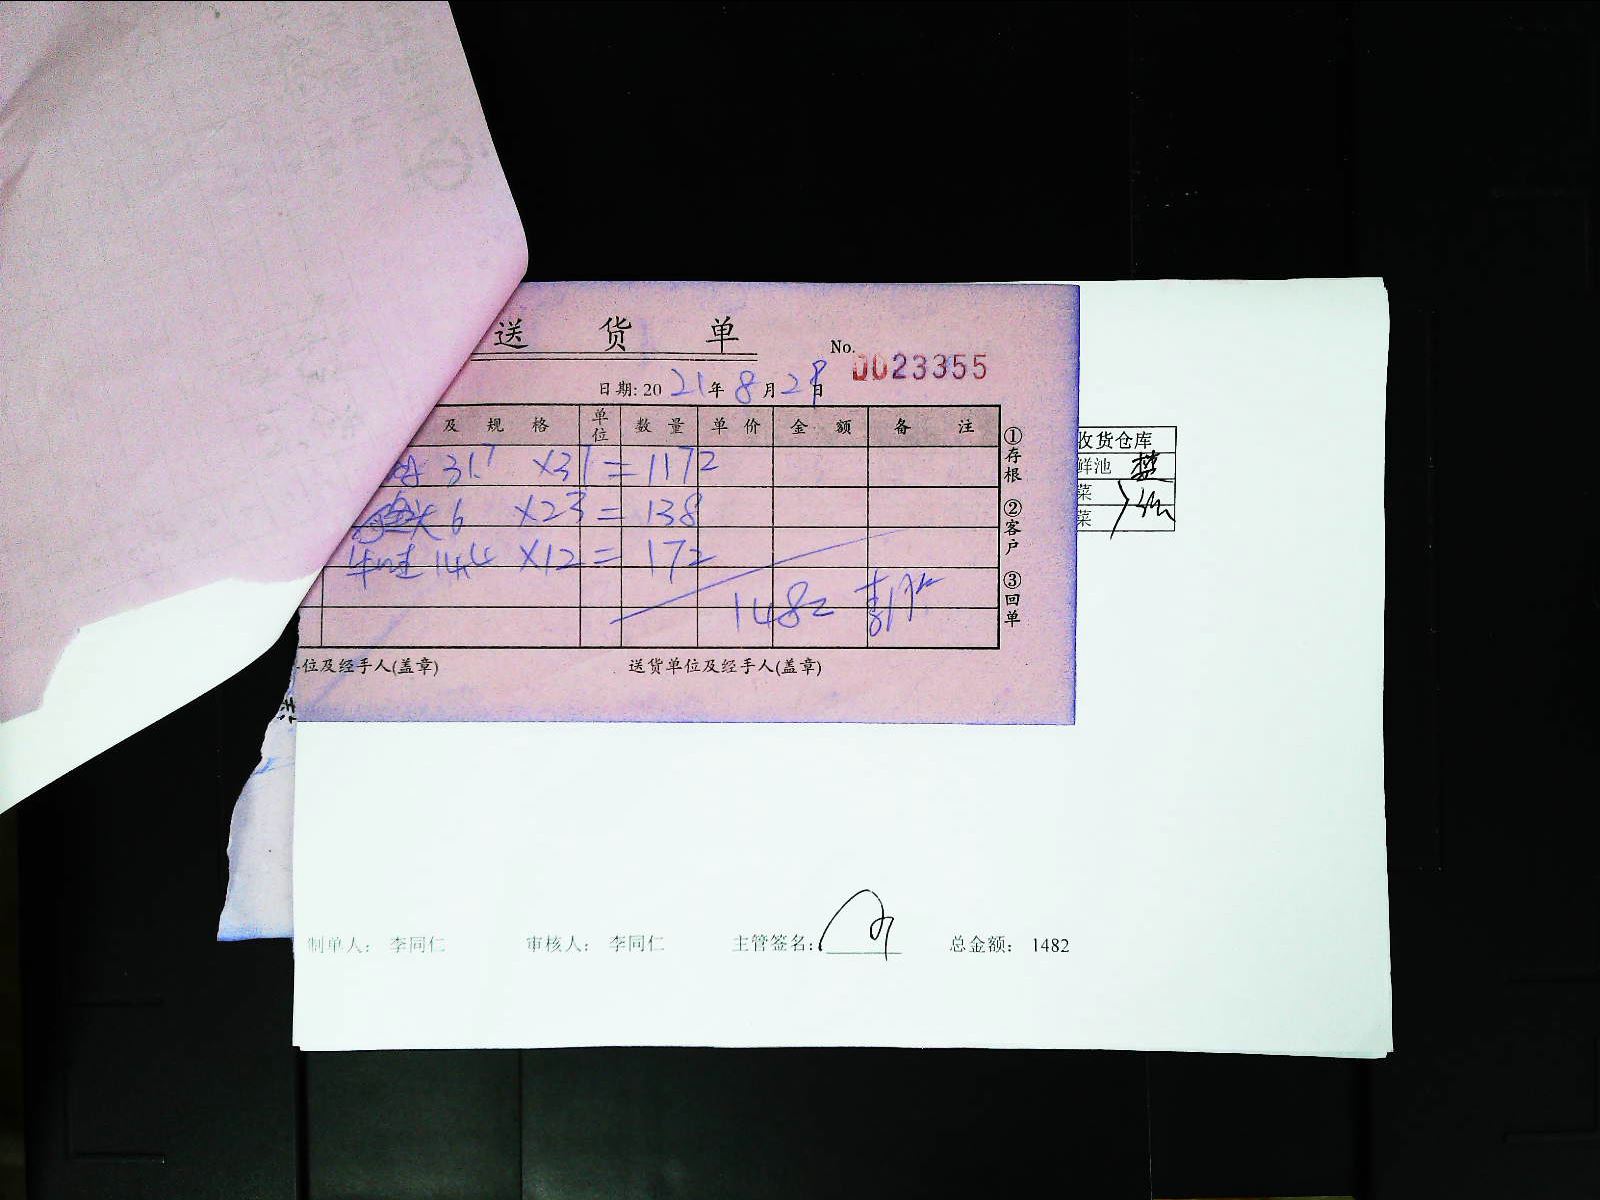 送 货 单
No. 0023355
日期: 2021年8月28日
及 规 格 单位 数 量 单 价 金 额 备 注
31.7 ×37=1172
鱼头 6 ×23=138
牛蛙 14.4 ×12=172
1482
①存根 ②客户 ③回单
位及经手人(盖章) 送货单位及经手人(盖章)
收货仓库
鲜池
菜
菜
制单人: 李同仁 审核人: 李同仁 主管签名: 总金额: 1482